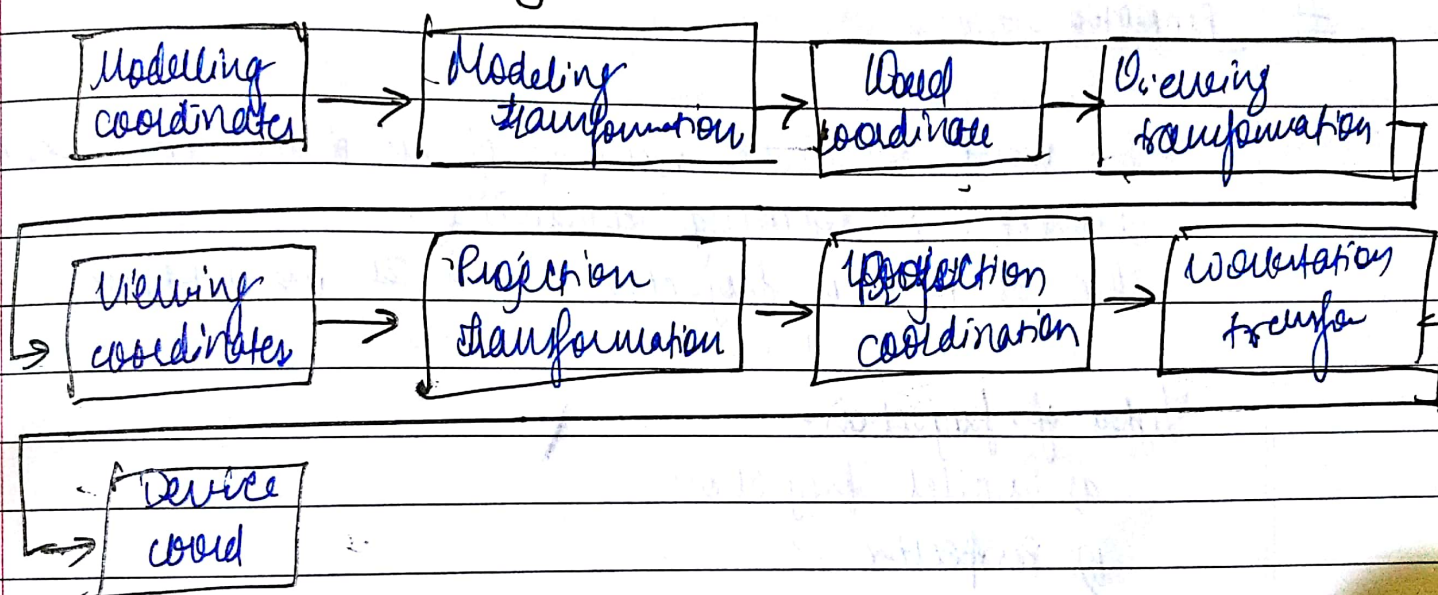 Modelling
coordinates
Modeling
transformation
World
coordinate
Viewing
transformation
Viewing
coordinates
Projection
transformation
Projection
coordination
workstation
transfor
Device
coord